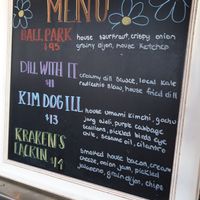 MENU
BALL PARK
$95
house saurkraut, crispy onion
grainy dijon, house ketchup
DILL WITH IT
$11
creamy dill sauce, local kale
radicchio slaw, house fried dill
KIM DOG ILL
$13
house umami kimchi, gochu
jang aioli, purple cabbage
scallions, pickled birds eye
chili, sesame oil, cilantro
KRAKEN'S
14
smoked house bacon, cream
cheese, onion jam, pickled
jalapeno, grain dijon, chips